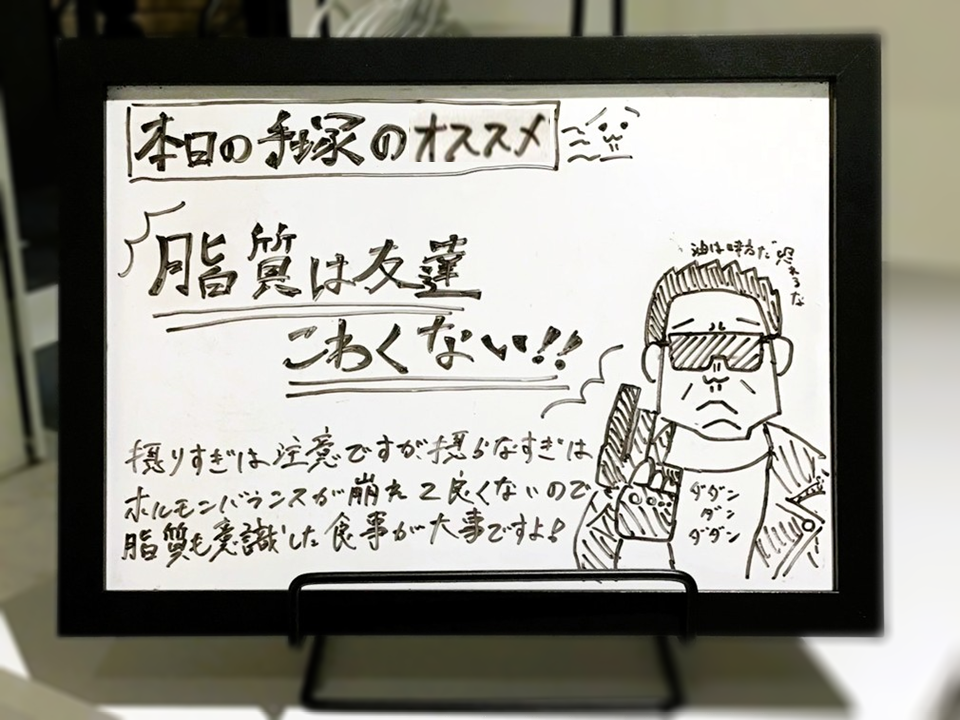 本日の手塚のオススメ
脂質は友達
こわくない!!
油は味方だ 恐れるな
摂りすぎは注意ですが摂らなすぎは
ホルモンバランスが崩れて良くないので、
脂質も意識した食事が大事ですよ!
ダダン
ダン
ダダン